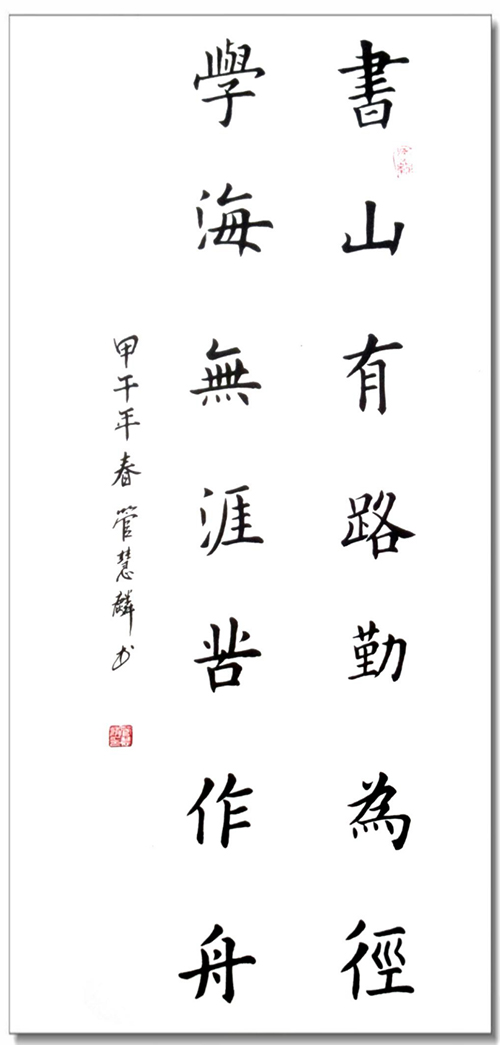 書山有路勤為徑
學海無涯苦作舟
甲午年春管慧麟书